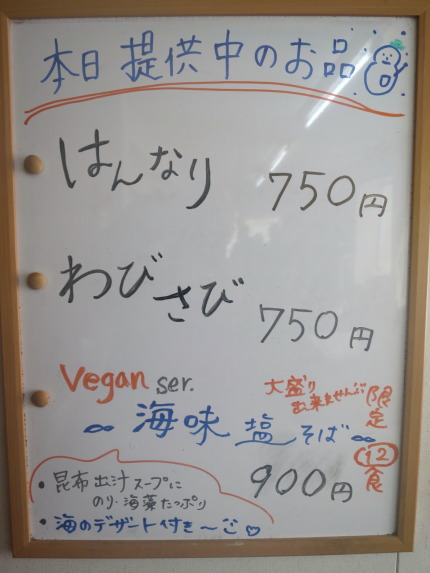 本日 提供中のお品
はんなり 750円
わびさび 750円
Vegan ser.
大盛り
出来ませんが
限定
12
食
〜 海味 塩そば 〜
900円
・昆布出汁スープに
のり・海藻たっぷり
・海のデザート付き〜♡